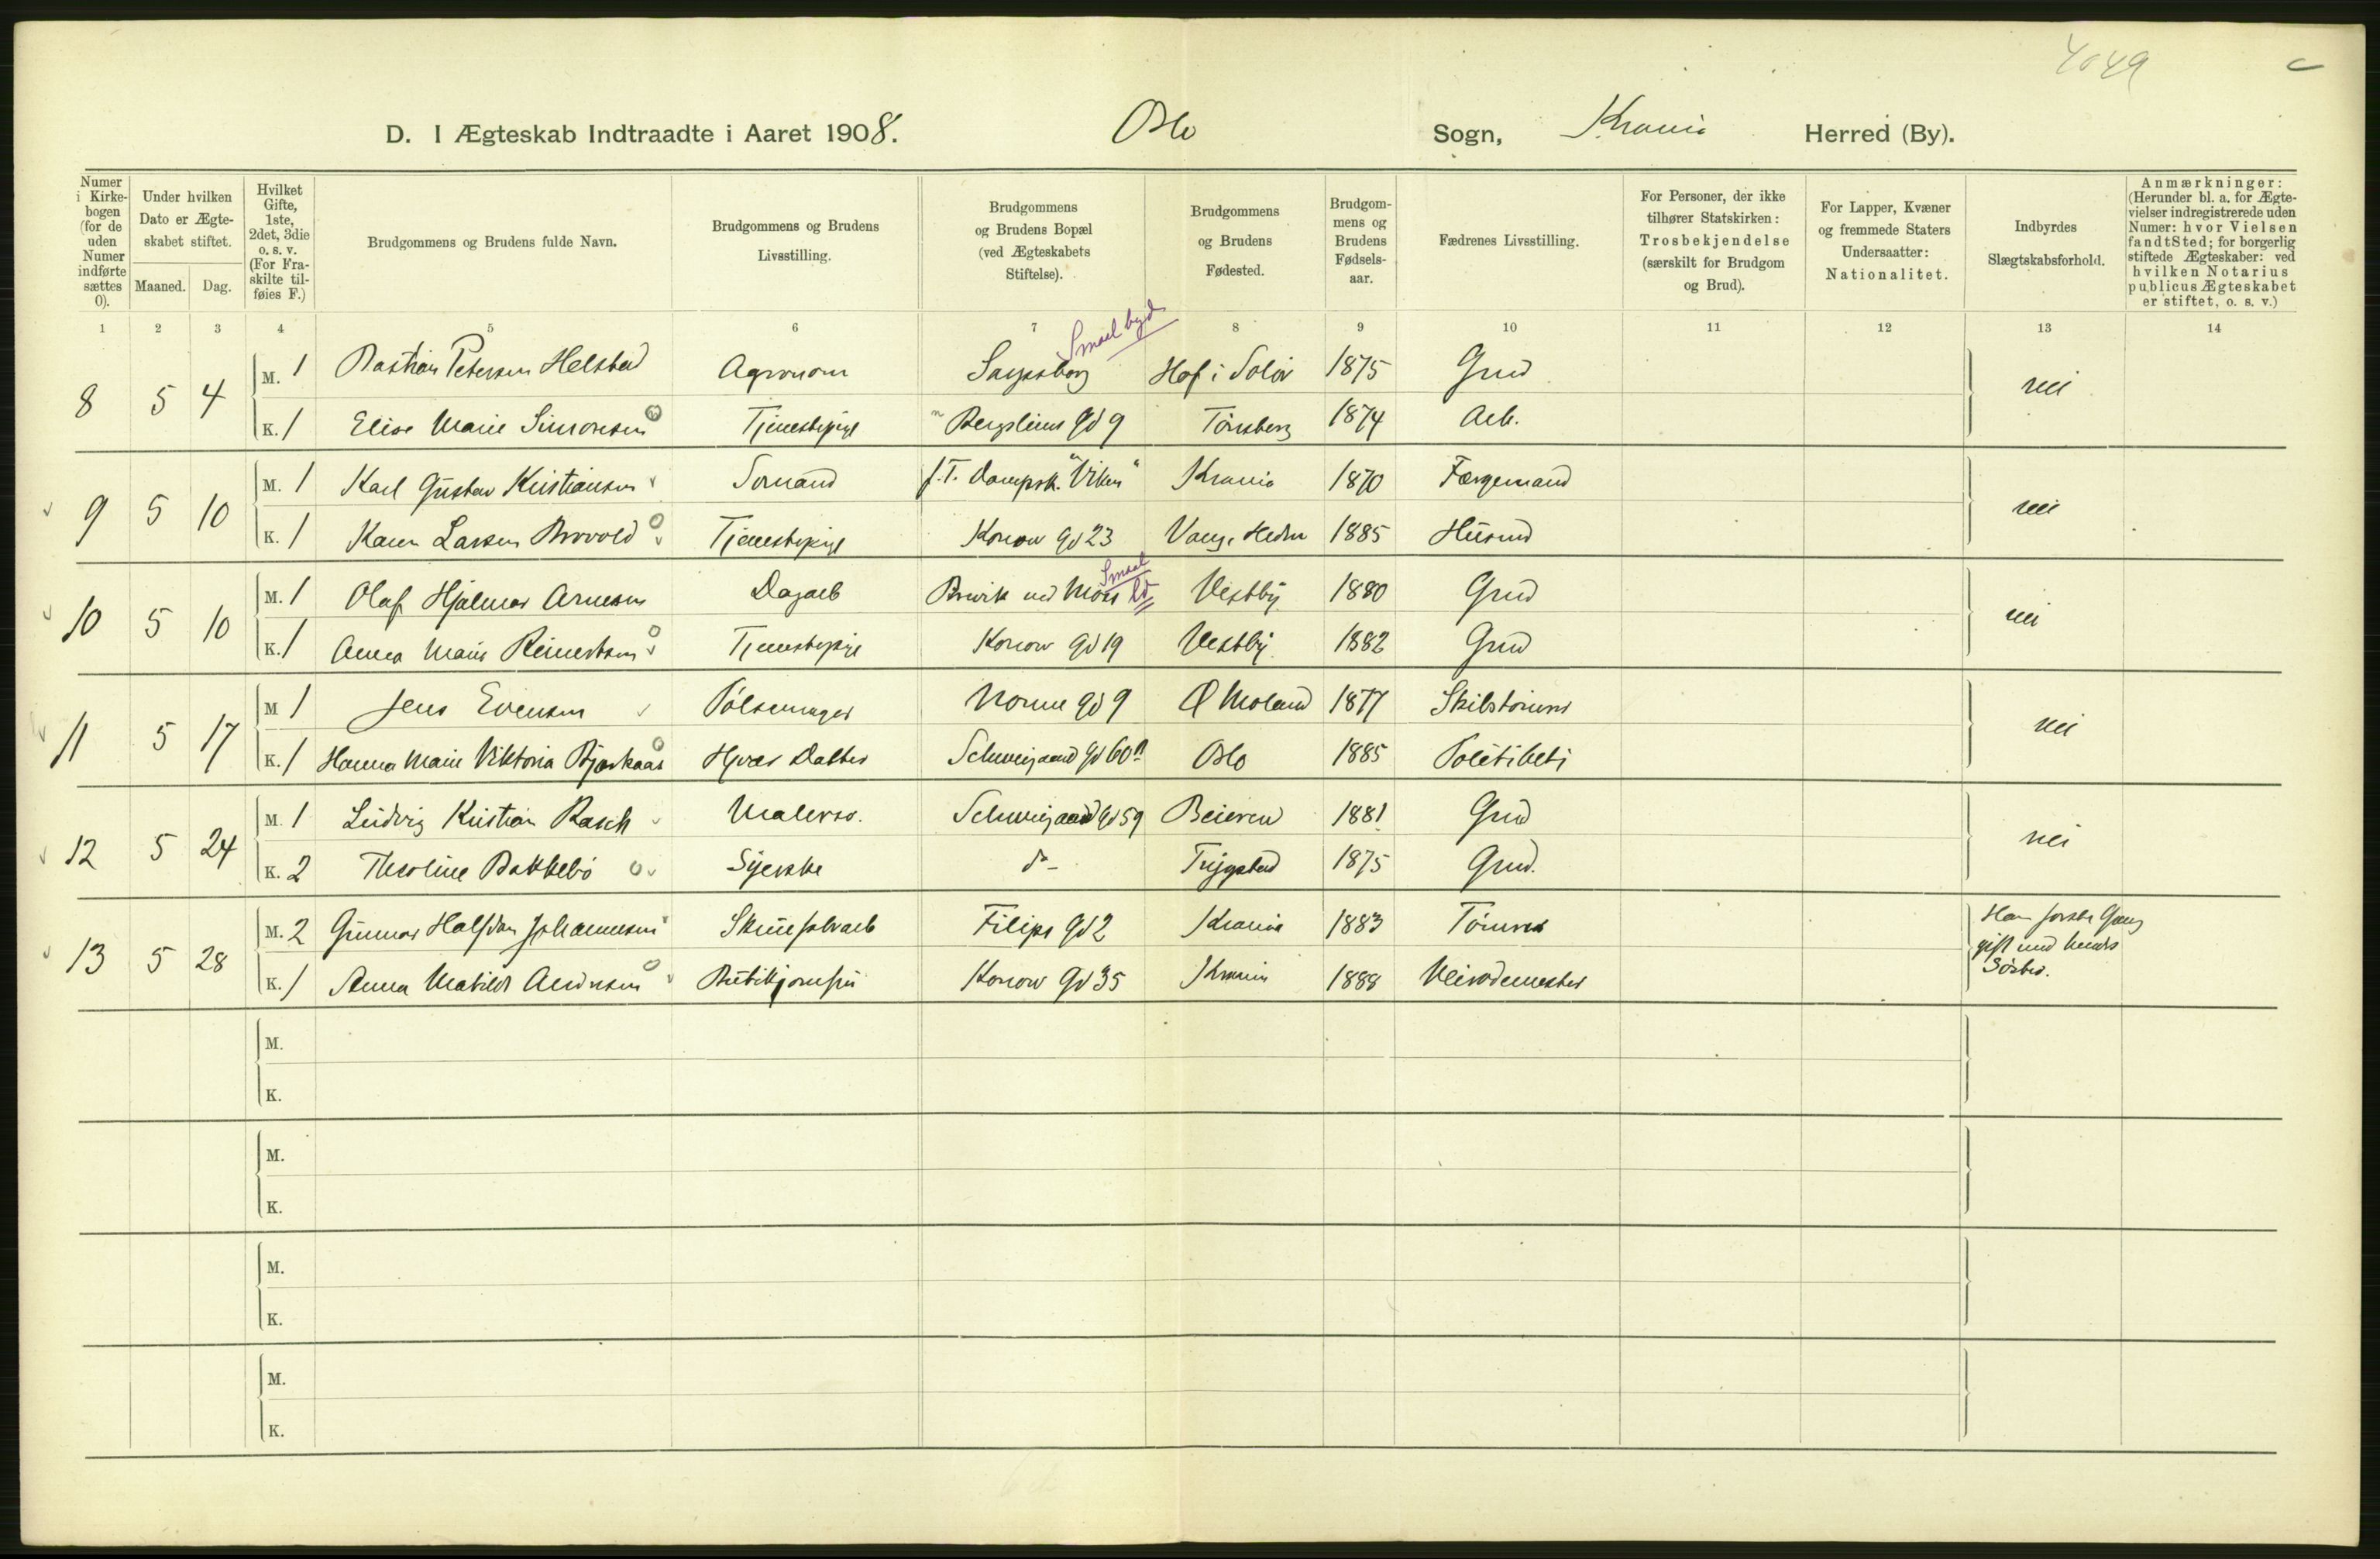 4049
D. I Ægteskab Indtraadte i Aaret 1908. Oslo Sogn, Krania Herred (By).
Numer i Kirkebogen (for de uden Numer indførte sættes 0).
Under hvilken Dato er Ægteskabet stiftet.
Maaned. Dag.
Hvilket Gifte, 1ste, 2det, 3die o. s. v. (For Fraskilte tilføies F.)
Brudgommens og Brudens fulde Navn.
Brudgommens og Brudens Livsstilling.
Brudgommens og Brudens Bopæl (ved Ægteskabets Stiftelse).
Brudgommens og Brudens Fødested.
Brudgommens og Brudens Fødselsaar.
Fædrenes Livsstilling.
For Personer, der ikke tilhører Statskirken: Trosbekjendelse (særskilt for Brudgom og Brud).
For Lapper, Kvæner og fremmede Staters Undersaatter: Nationalitet.
Indbyrdes Slægtskabsforhold.
Anmærkninger: (Herunder bl. a. for Ægtevielser indregistrerede uden Numer: hvor Vielsen fandt Sted; for borgerlig stiftede Ægteskaber: ved hvilken Notarius publicus Ægteskabet er stiftet, o. s. v.)
1 2 3 4 5 6 7 8 9 10 11 12 13 14
8 5 4 M. 1 Bastian Petersen Helstad Agronom Sarpsborg Hof i Solør 1875 Grud nei
K. 1 Elise Marie Simonsen Tjenestepige Bergliens Gd 9 Tönsberg 1874 Arb.
9 5 10 M. 1 Karl Gustav Kristiansen Sømand f.T. Dampsk. "Viken" Krania 1870 Færgemand nei
K. 1 Karen Larsen Brovold Tjenestepige Konow Gd 23 Vang, Hedm 1885 Husmd
Smaal
10 5 10 M. 1 Olaf Hjalmar Arnesen Dagarb ved Moss Vestby 1880 Grud nei
K. 1 Anna Marie Reinertsen Tjenestepige Konow Gd 19 Vestby 1882 Grud
11 5 17 M 1 Jens Evensen Pölsemager Norne Gd 9 Ø Moland 1877 nei
K. 1 Hanna Marie Viktoria Bjerkaas Schweigaard Gd 60 Oslo 1885 Politibetj
12 5 24 M. 1 Ludvig Kristian Rasch Malersv. Schweigaard Gd 59 Beieren 1881 Grud nei
K. 2 Theoline Bakkebö Syerske do - Trygstad 1875 Grud.
13 5 28 M. 2 Gunnar Halfdan Johannesen Filips Gd 2 Krania 1883 Tömrer Han forste Gang
gift med hendes
Söster.
K. 1 Anna Matilde Andersen Konow Gd 35 Krania 1888
M.
K.
M.
K.
M.
K.
M.
K.